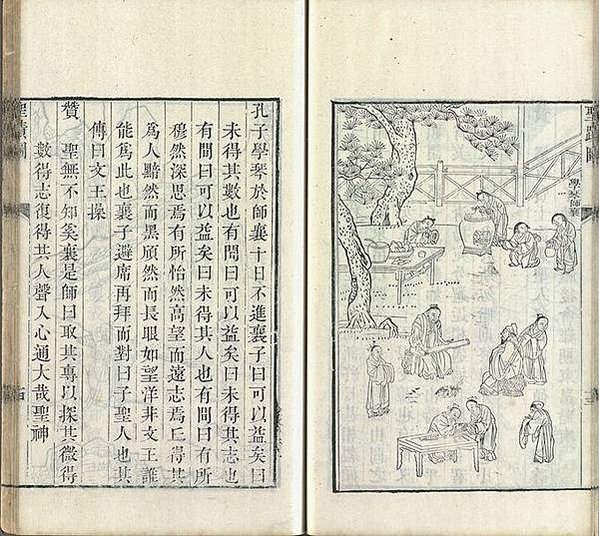 聖蹟圖
學琴師襄
孔子學琴於師襄十日不進襄子曰可以益矣曰
未得其數也有間曰可以益矣曰未得其志也
有間曰可以益矣曰未得其人也有間曰有所
穆然深思焉有所怡然高望而遠志焉丘得其
為人黯然而黑頎然而長眼如望洋非文王誰
能為此也襄子避席再拜而對曰子聖人也其
傳曰文王操
贊 聖無不知奚襄是師曰取其專以探其微得
數得志復得其人聲入心通大哉聖神
聖蹟圖